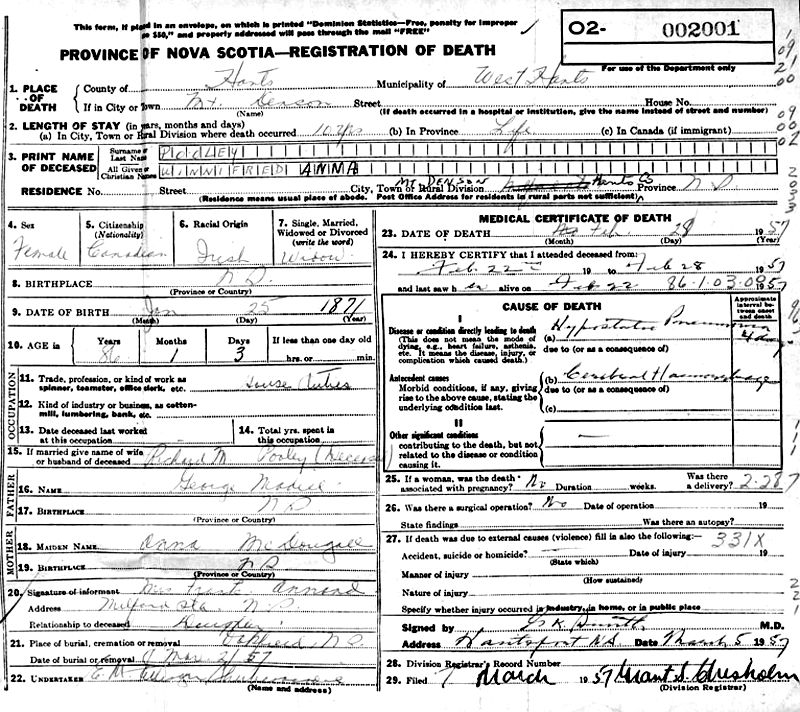 This form, if placed in an envelope, on which is printed "Dominion Statistics—Free, penalty for improper
use $50," and properly addressed will pass through the mail "FREE"
02- 002001
For use of the Department only
PROVINCE OF NOVA SCOTIA—REGISTRATION OF DEATH
1. PLACE OF DEATH
County of Hants Municipality of West Hants
If in City or Town Mt. Denson Street House No.
(Name) (If death occurred in a hospital or institution, give the name instead of street and number)
2. LENGTH OF STAY (in years, months and days)
(a) In City, Town or Rural Division where death occurred 10 yrs (b) In Province Life (c) In Canada (if immigrant)
3. PRINT NAME OF DECEASED
Surname or Last Name POOLEY
All Given or Christian Names WINNIFRED ANNA
RESIDENCE No. Street City, Town or Rural Division MT DENSON Hants Co Province N S
(Residence means usual place of abode. Post Office Address for residents in rural parts not sufficient)
4. Sex
Female
5. Citizenship
(Nationality)
Canadian
6. Racial Origin
Irish
7. Single, Married, Widowed or Divorced
(write the word)
Widow
8. BIRTHPLACE N.S.
(Province or Country)
9. DATE OF BIRTH Jan 25 1871
(Month) (Day) (Year)
10. AGE in Years Months Days If less than one day old
86 1 3 hrs. or min.
OCCUPATION
11. Trade, profession, or kind of work as
spinner, teamster, office clerk, etc. House Duties
12. Kind of industry or business, as cotton-
mill, lumbering, bank, etc.
13. Date deceased last worked
at this occupation
14. Total yrs. spent in
this occupation
15. If married give name of wife
or husband of deceased Richard M Pooley (Deceased)
FATHER
16. NAME George
17. BIRTHPLACE N S
(Province or Country)
MOTHER
18. MAIDEN NAME Anna McDougall
19. BIRTHPLACE N S
(Province or Country)
20. Signature of informant Mrs
Address Milford Sta. N.S.
Relationship to deceased Daughter
21. Place of burial, cremation or removal Oakfield N.S.
Date of burial or removal Mar 2/57
22. UNDERTAKER
(Name and address)
MEDICAL CERTIFICATE OF DEATH
23. DATE OF DEATH Feb 28 1957
(Month) (Day) (Year)
24. I HEREBY CERTIFY that I attended deceased from:
Feb 22 19 to Feb 28 1957
and last saw her alive on Feb 22 86-1-03-09 1957
CAUSE OF DEATH
Approximate interval between onset and death
I
Disease or condition directly leading to death
(This does not mean the mode of dying, e.g., heart failure, asthenia, etc. It means the disease, injury, or complication which caused death.)
(a) Hypostatic Pneumonia 4 days
due to (or as a consequence of)
Antecedent causes
Morbid conditions, if any, giving rise to the above cause, stating the underlying condition last.
(b) Cerebral Haemorrhage
due to (or as a consequence of)
(c)
II
Other significant conditions
contributing to the death, but not related to the disease or condition causing it.
25. If a woman, was the death
associated with pregnancy? No Duration weeks. Was there a delivery? 2-28 7
26. Was there a surgical operation? No Date of operation 19
State findings Was there an autopsy?
27. If death was due to external causes (violence) fill in also the following:— 331X
Accident, suicide or homicide? Date of injury 19
(State which)
Manner of injury
(How sustained)
Nature of injury
Specify whether injury occurred in industry, in home, or in public place
Signed by M.D.
Address Hantsport N.S. Date March 5 1957
28. Division Registrar's Record Number
29. Filed 7 March 1957 Grant S. Chisholm
(Division Registrar)